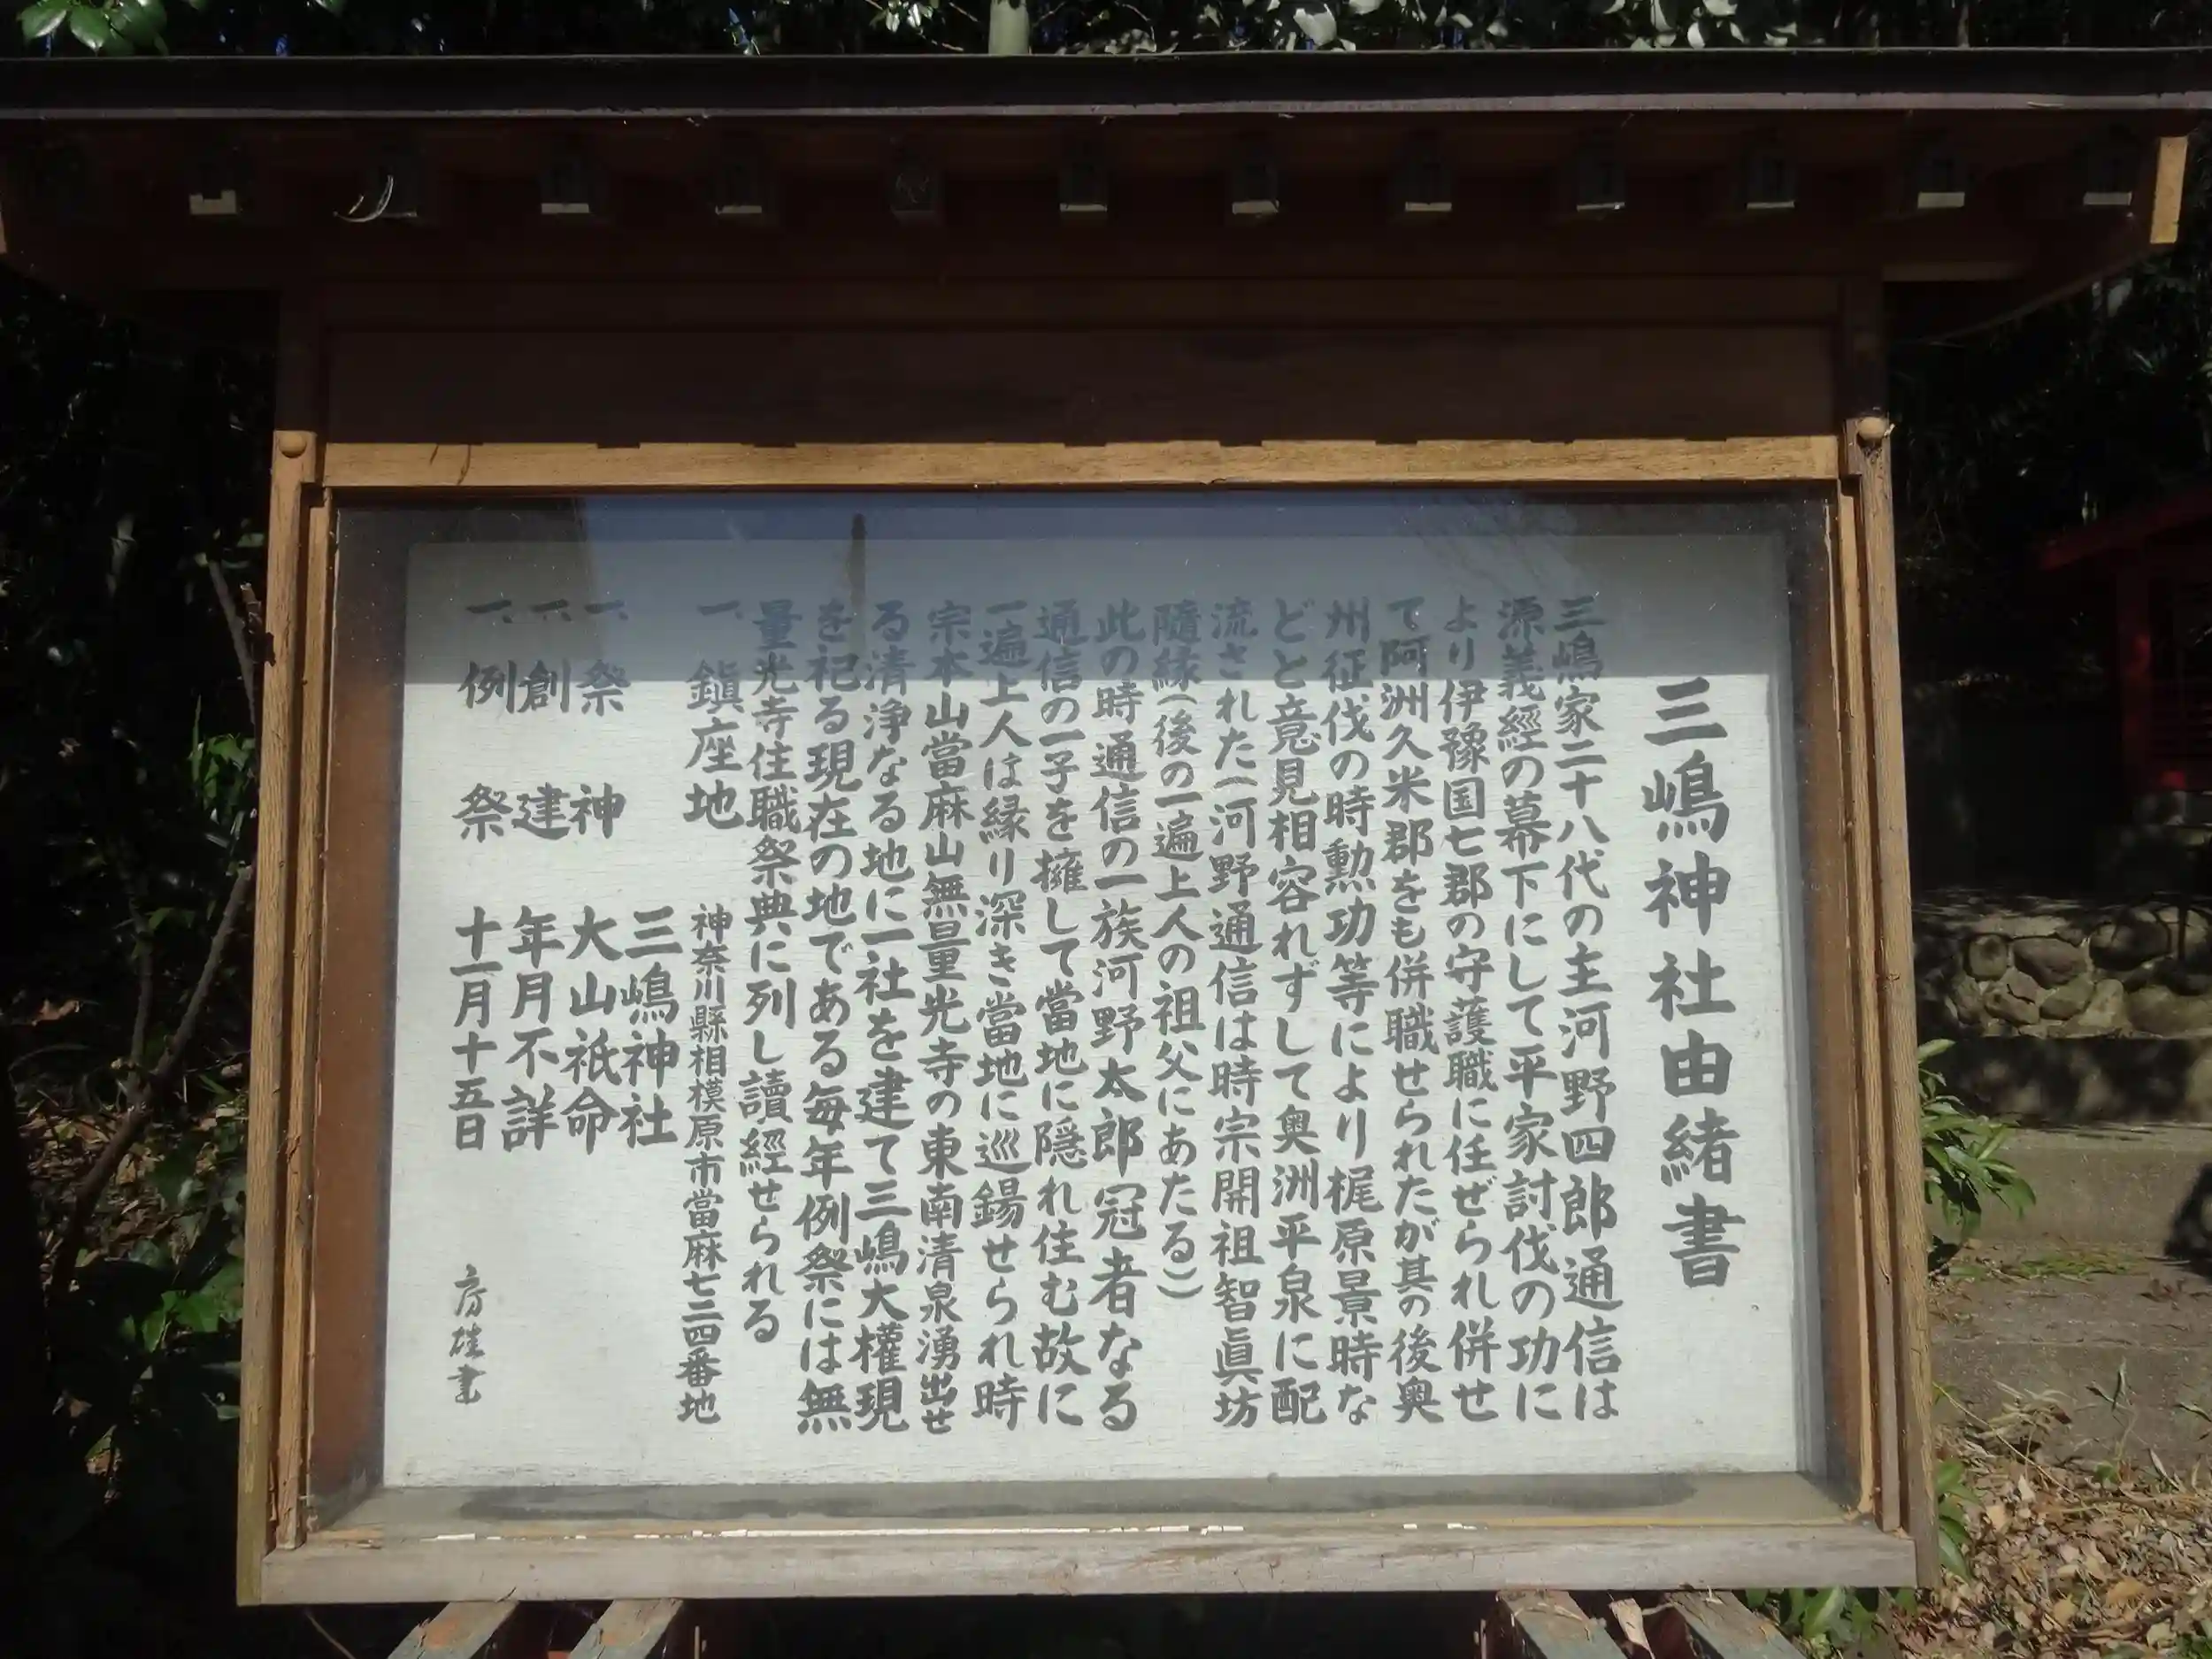 三嶋神社由緒書
三嶋家二十八代の主河野四郎通信は
源義經の幕下にして平家討伐の功に
より伊豫国七郡の守護職に任ぜられ併せ
て阿洲久米郡をも併職せられたが其の後奥
州征伐の時勲功等により梶原景時な
どと意見相容れずして奥洲平泉に配
流された(河野通信は時宗開祖智眞坊
隨縁(後の一遍上人の祖父にあたる)
此の時通信の一族河野太郎冠者なる
通信の一子を擁して當地に隠れ住む故に
一遍上人は縁り深き當地に巡錫せられ時
宗本山當麻山無量光寺の東南清泉湧出せ
る清浄なる地に一社を建て三嶋大權現
を祀る現在の地である毎年例祭には無
量光寺住職祭典に列し讀經せられる
一、鎮座地 神奈川縣相模原市當麻七二四番地
三嶋神社
一、祭神 大山祇命
一、創建 年月不詳
一、例祭 十一月十五日
房雄書